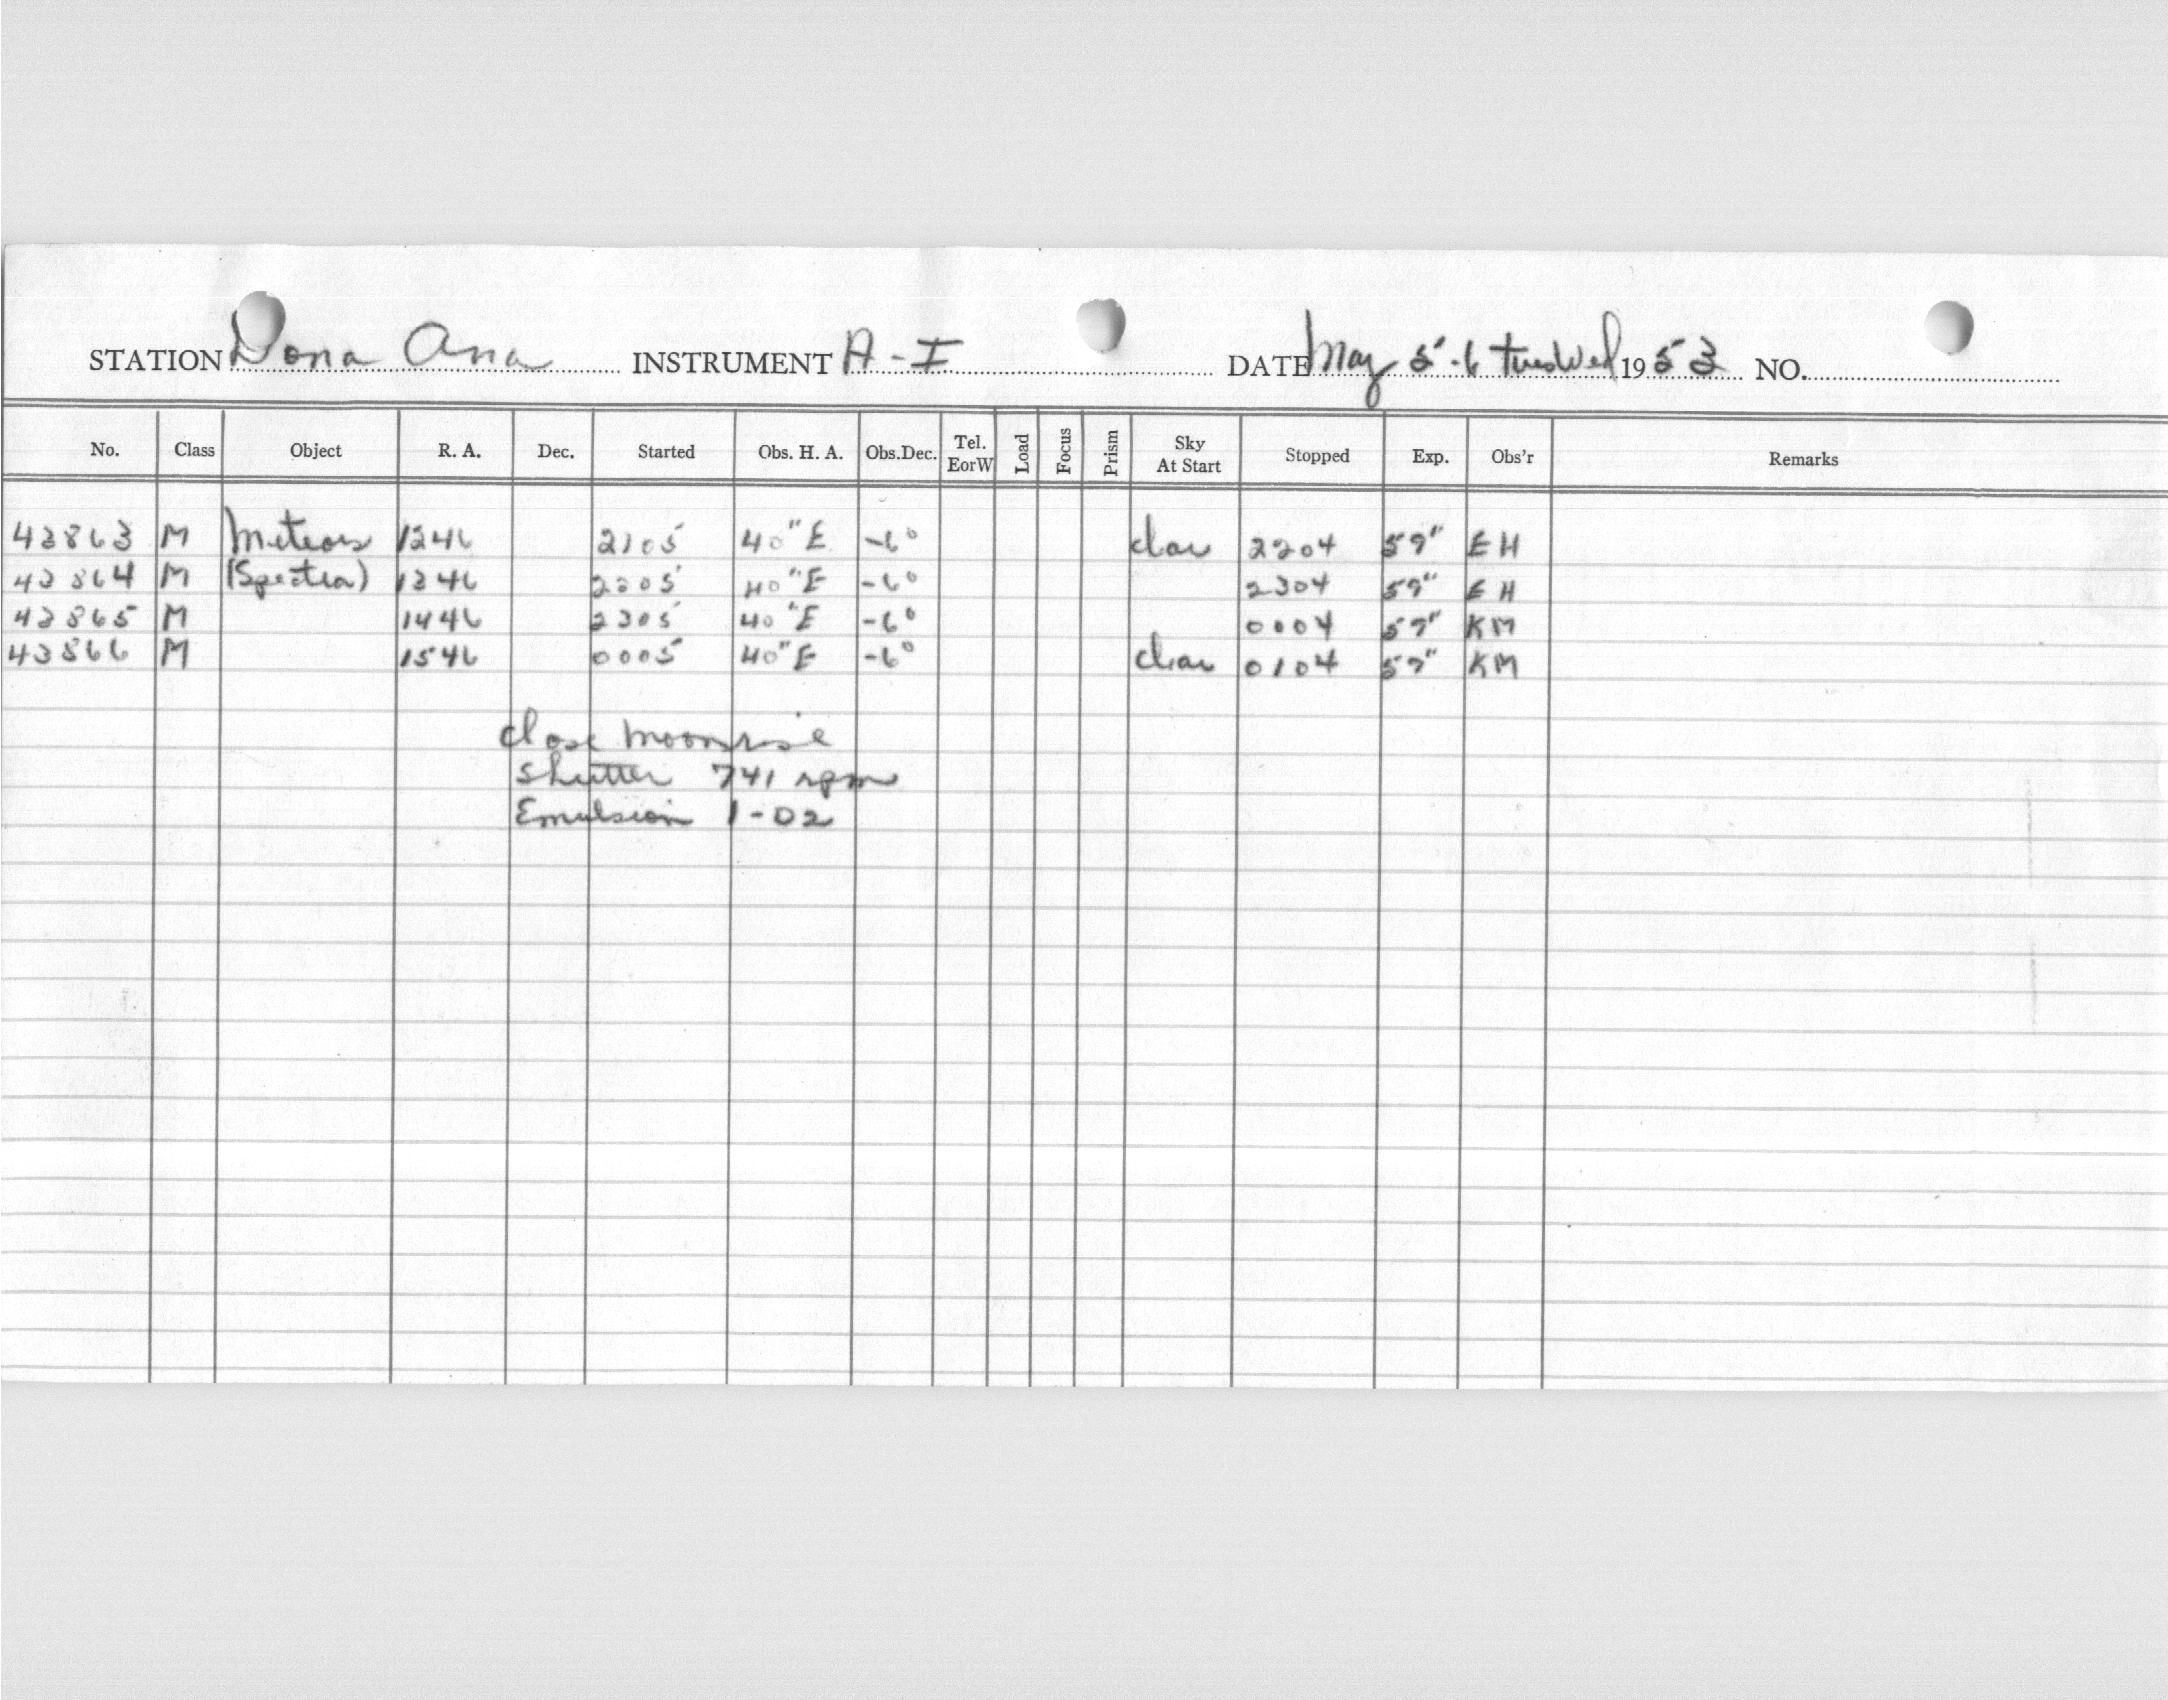 STATION Dona Ana INSTRUMENT A-I DATE May 5-6 Tues Wed 1953 NO.
No. Class Object R. A. Dec. Started Obs. H. A. Obs.Dec. Tel. EorW Load Focus Prism Sky At Start Stopped Exp. Obs'r Remarks
43863 M Meteors 1246 2105 40" E -6° clear 2204 59" EH
43864 M (Spectra) 1346 2205 40" E -6° 2304 59" EH
43865 M 1446 2305 40" E -6° 0004 59" KM
43866 M 1546 0005 40" E -6° clear 0104 59" KM
close moonrise
Shutter 741 rpm
Emulsion 1-D2